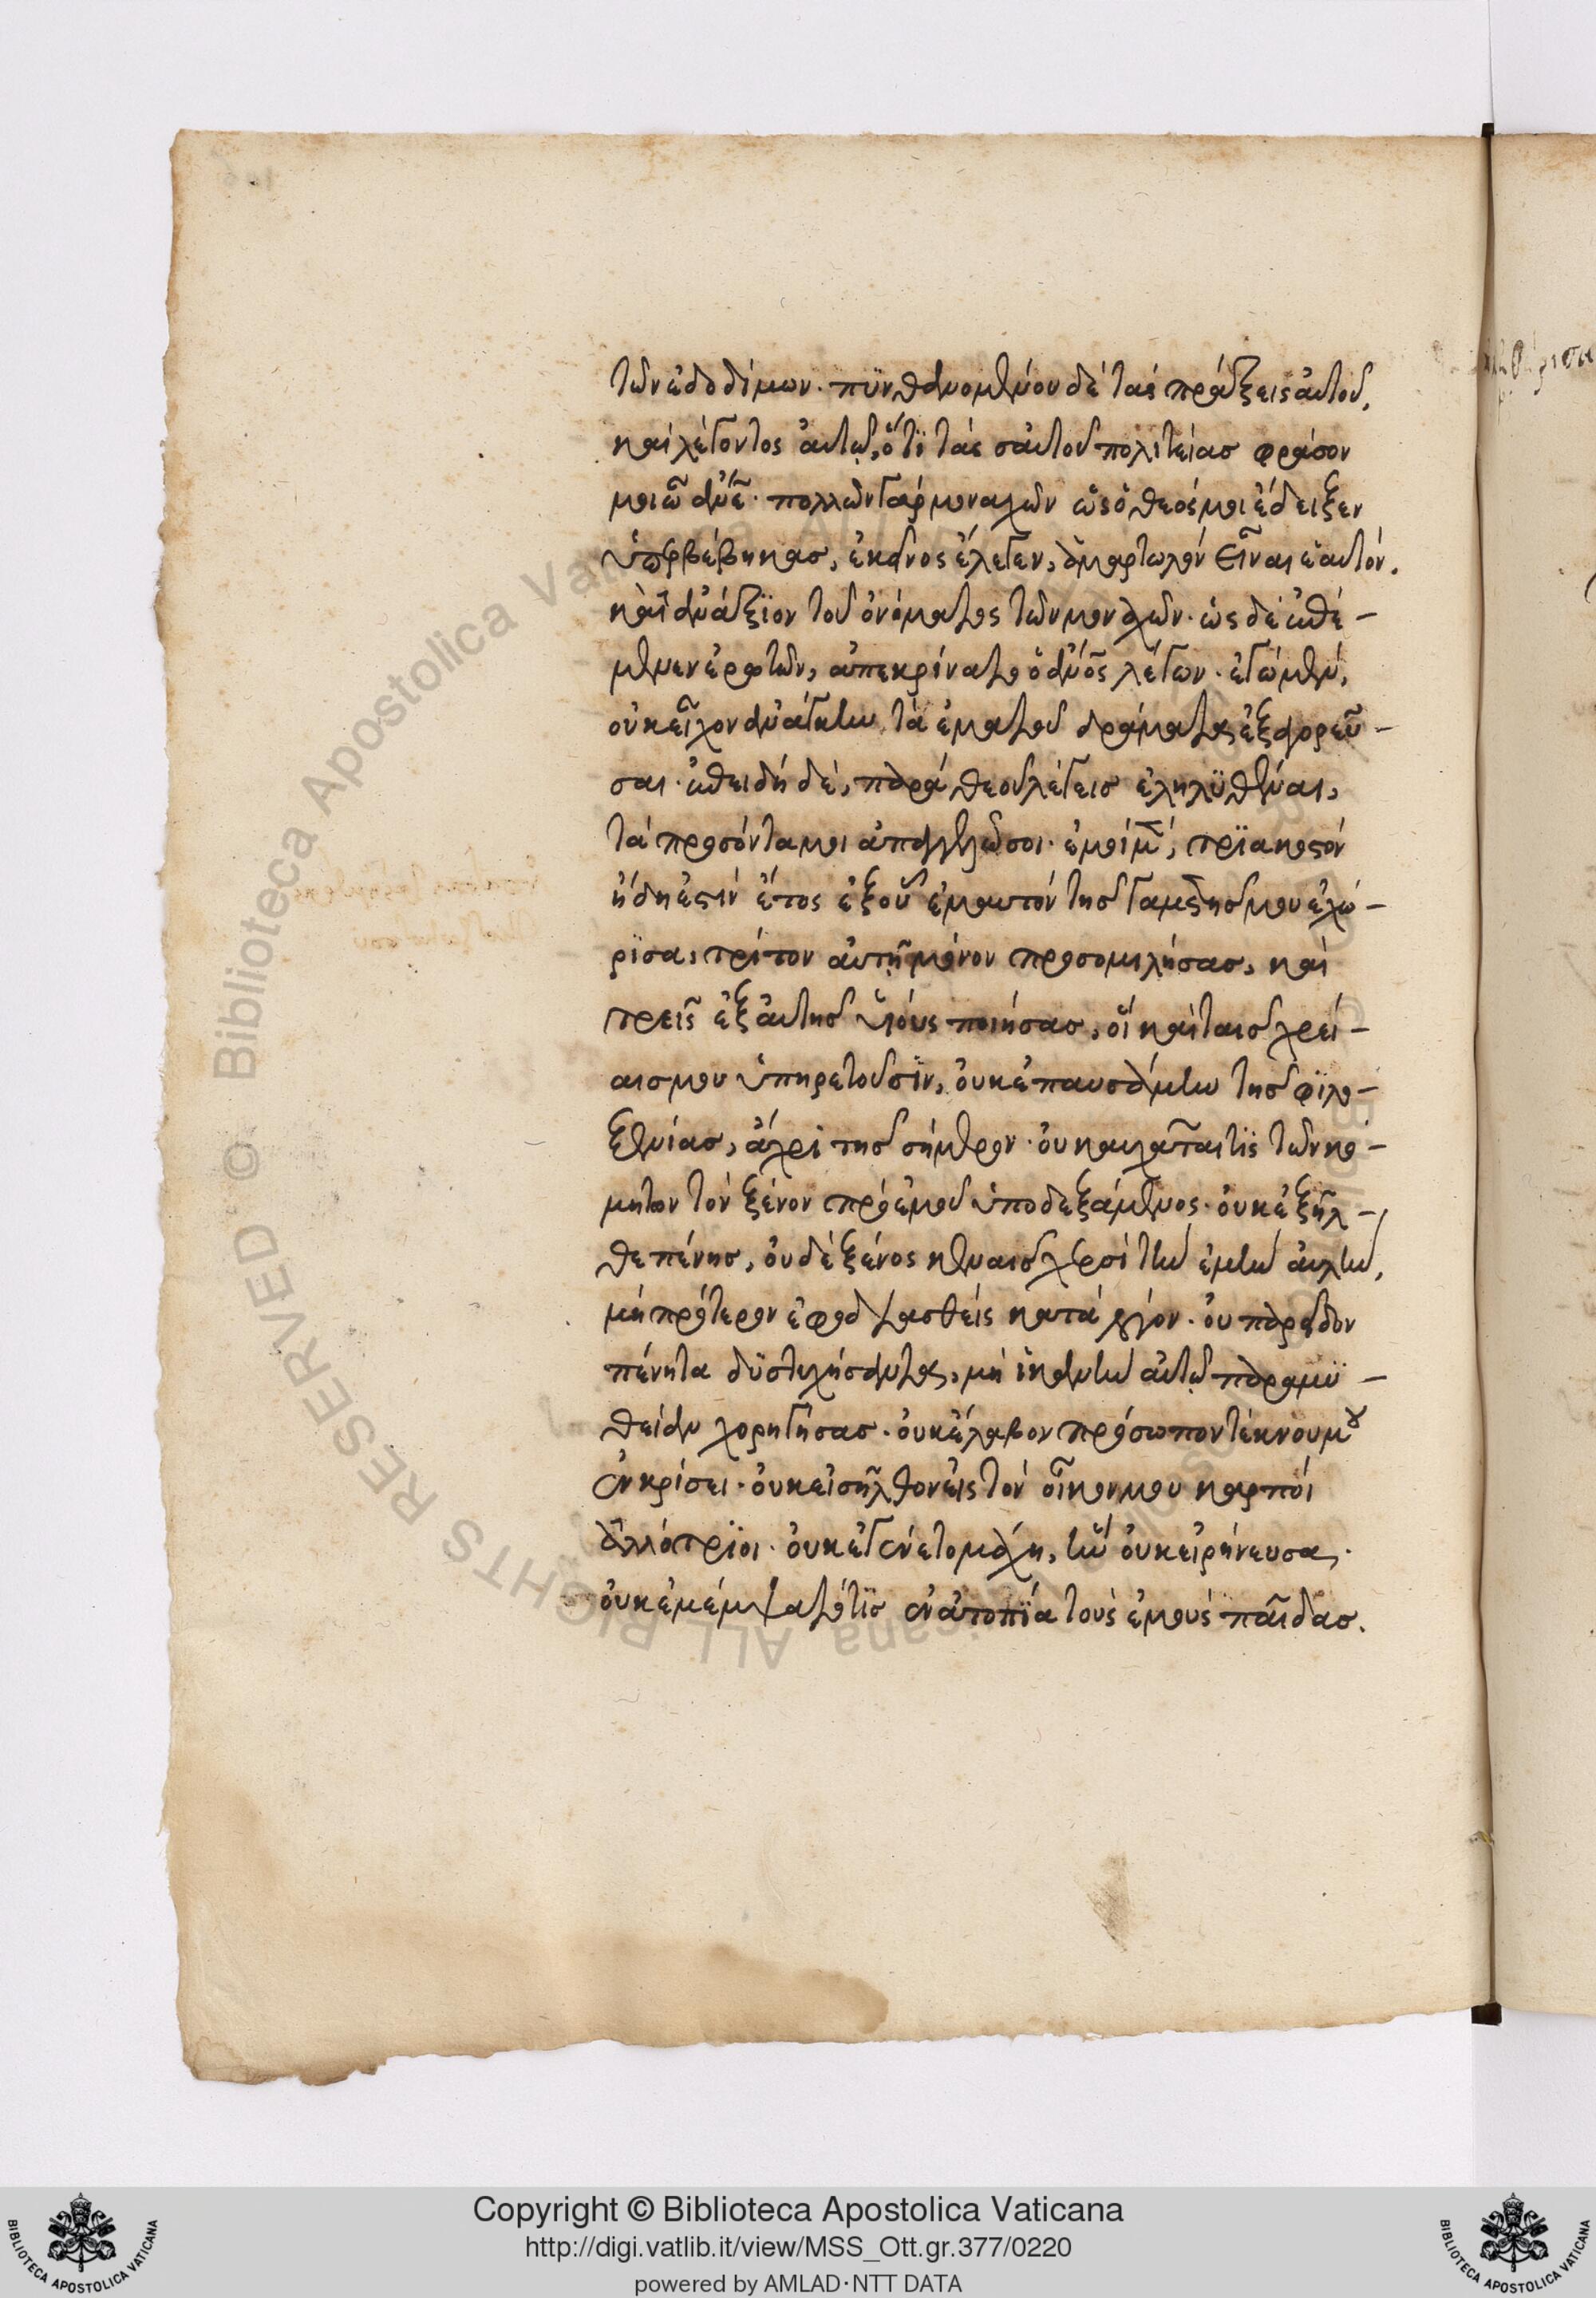 τῶν ἐδωδίμων. πϋνθανομένου δὲ τὰς πράξεις αὐτοῦ,
καὶ λέγοντος αὐτῷ, ὅτϊ τὰς σαὐτοῦ πολιτείας φράσον
μοι ὦ ἄνε̄. πολλῶν γὰρ μοναχῶν ὡς ὁ θεός μοι ἔδειξεν
ὑπερβέβηκας, ἐκεῖνος ἔλεγεν, ἁμαρτωλὸν εἶναι ἑαυτόν.
καὶ ἀνάξϊον τοῦ ὀνόματος τῶν μοναχῶν. ὡς δὲ ἐπέ-
μεινεν ἐρωτῶν, ἀπεκρίνατο ὁ ἄνο̄ς λέγων. ἐγὼ μὲν,
οὐκ εἶχον ἀνάγκην τὰ ἐμαυτοῦ δράματα ἐξαγορεῦ-
σαι. ἐπειδὴ δὲ, παρὰ θεοῦ λέγεις ἐληλϋθέναι,
τὰ προσόντα μοι ἀπαγγελῶ σοι. ἐμοὶ μ̄, τρϊακοστόν
ἤδη ἐστὶν ἔτος ἐξ οὗ ἐμαυτὸν τῆς γαμετῆς μου ἐχώ-
ρϊσα, τρίτον αὐτῇ μόνον προσομιλήσας, καὶ
τρεῖς ἐξ αὐτῆς ὑϊοὺς ποιήσας, οἳ καὶ ταῖς χρεί-
αις μου ὑπηρετοῦσϊν, οὐκ ἐπαυσάμην τῆς φϊλο-
ξενίας, ἄχρι τῆς σήμερον. οὐ καυχᾶταί τϊς τῶν κω-
μητῶν τὸν ξένον πρὸ ἐμοῦ ὑποδεξάμενος. οὐκ ἐξῆλ-
θε πένης, οὐδὲ ξένος κεναῖς χερσὶ τὴν ἐμὴν αὐλὴν,
μὴ πρότερον ἐφοδιασθεὶς κατὰ λόγον. οὐ παρεῖδον
πένητα δϋστυχήσαντα, μὴ ἱκανὴν αὐτῷ παραμϋ-
θείαν χορηγήσας. οὐκ ἔλαβον πρόσωπον τέκνου μου
ἐν κρίσει. οὐκ εἰσῆλθον εἰς τὸν οἶκον μου καρποὶ
ἀλλότρϊοι. οὐκ ἐγένετο μάχη, ἣν οὐκ εἰρήνευσα.
οὐκ ἐμέμψατό τϊς ἐν ἀτοπΐα τοὺς ἐμοὺς παῖδας.
Copyright © Biblioteca Apostolica Vaticana
http://digi.vatlib.it/view/MSS_Ott.gr.377/0220
powered by AMLAD·NTT DATA